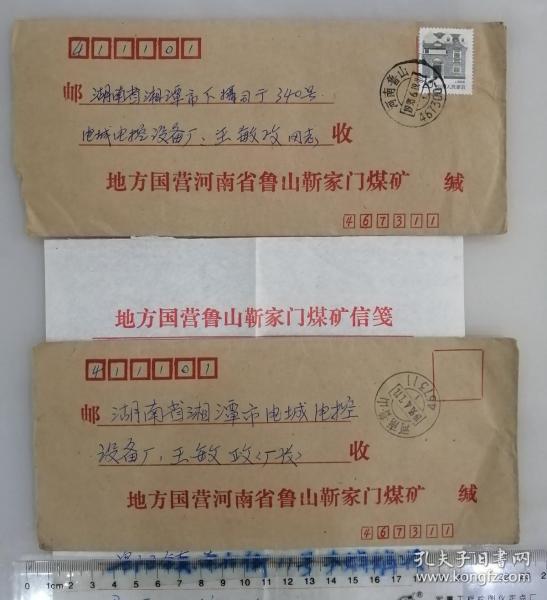 411101
邮 湖南省湘潭市下摄司丁340号
电城电控设备厂、王敏政同志 收
地方国营河南省鲁山靳家门煤矿 缄
467311
河南鲁山
467300
地方国营鲁山靳家门煤矿信笺
411101
邮 湖南省湘潭市电城电控
设备厂、王敏政(厂长) 收
地方国营河南省鲁山靳家门煤矿 缄
467311
河南鲁山
467311
孔夫子旧书网
kongfz.com